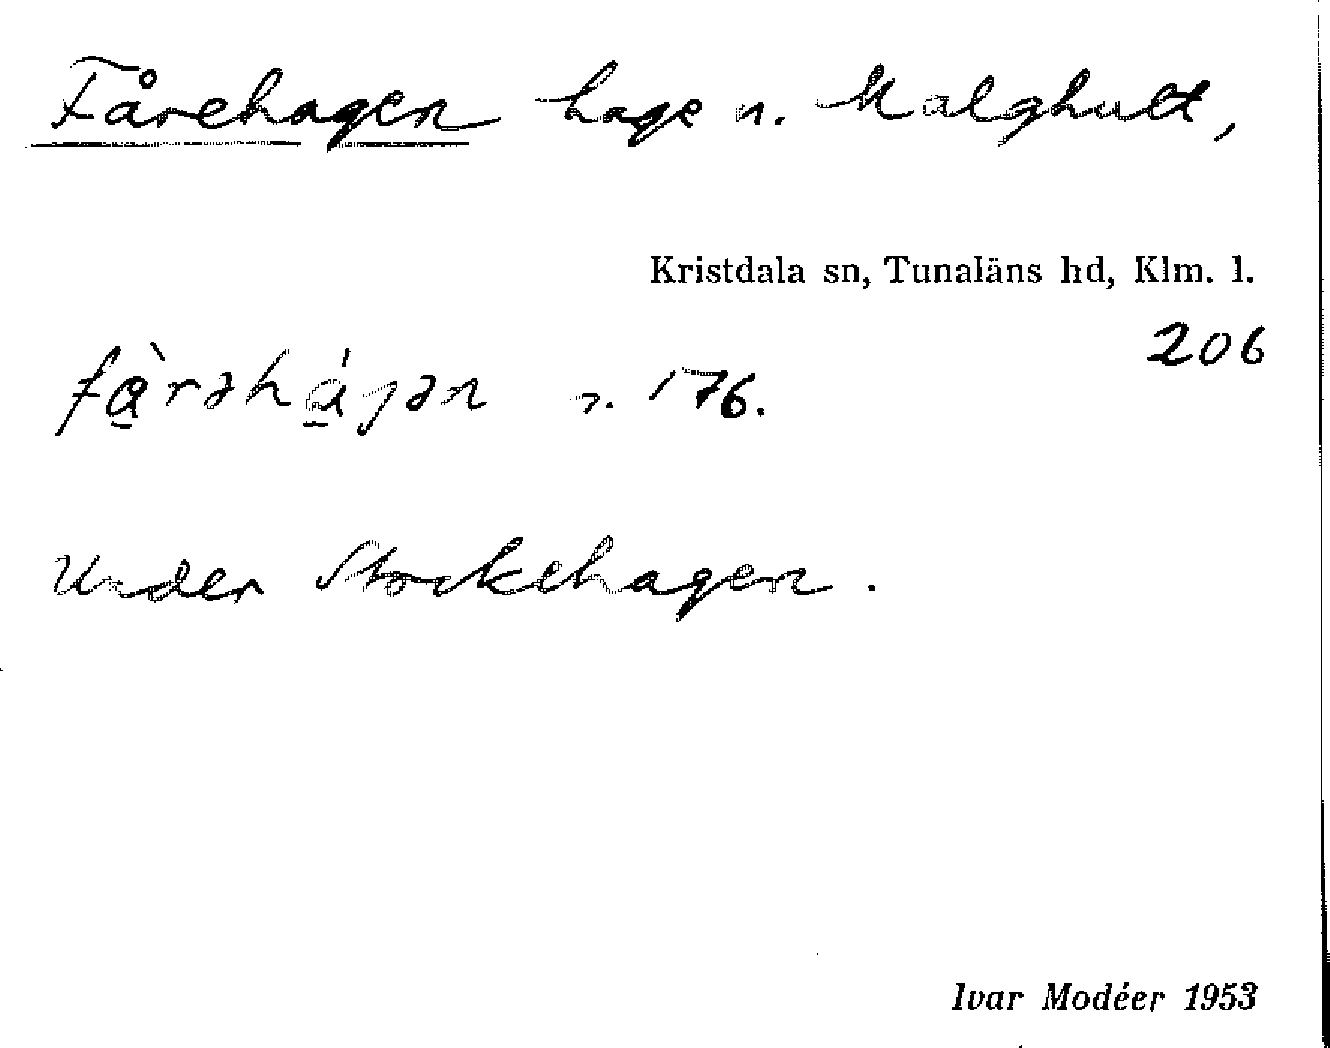 Fårehagen hage n. Malghult,
Kristdala sn, Tunaläns hd, Klm. l.
206
fà̱rəhá̱gən n. 176.
Under Stockehagen.
Ivar Modéer 1953